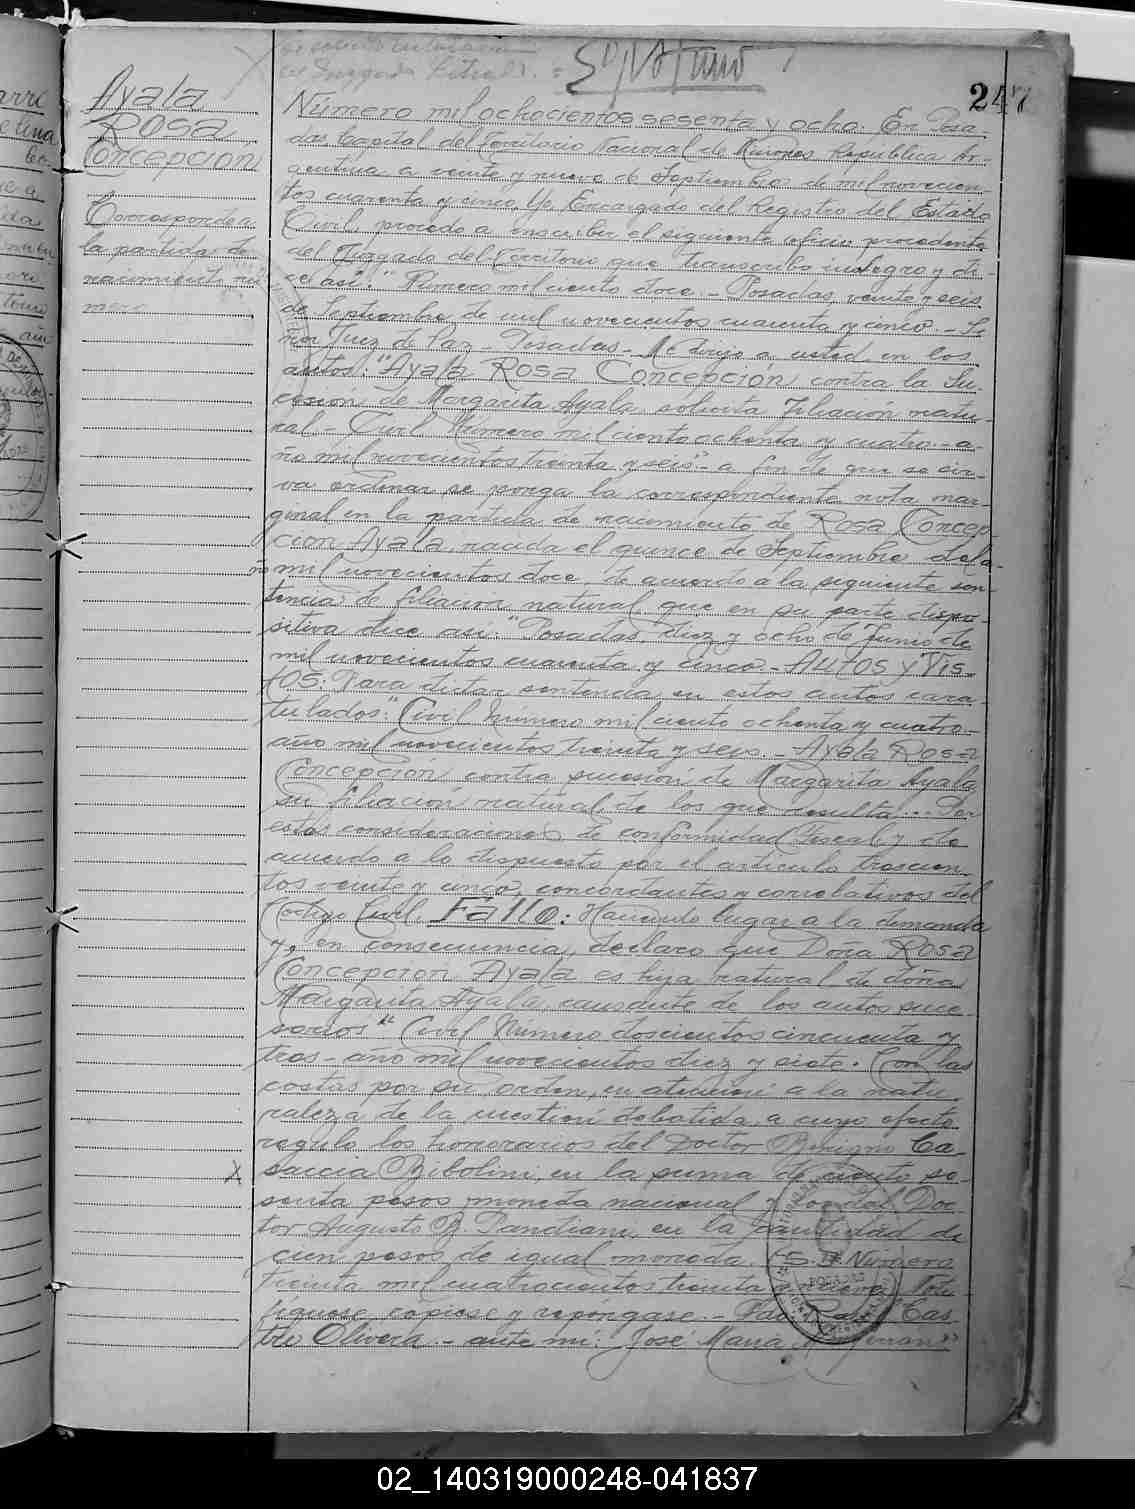 247
Ayala
Rosa
Concepción
Corresponde a
la partida de
nacimiento nú
mero
Número mil ochocientos sesenta y ocho. En Posa-
das Capital del Territorio Nacional de Misiones República Ar-
gentina a veinte y nueve de Septiembre de mil novecien-
tos cuarenta y cinco, Yo, Encargado del Registro del Estado
Civil, procedo a inscribir el siguiente oficio procedente
del Juzgado del Territorio que transcribo integro y di-
ce así: "Número mil ciento doce.- Posadas, veinte y seis
de Septiembre de mil novecientos cuarenta y cinco.- Se-
ñor Juez de Paz - Posadas - Me dirijo a usted en los
autos: "Ayala Rosa Concepción contra la Su-
cesión de Margarita Ayala, solicita filiación natu-
ral - Civil Número mil ciento ochenta y cuatro - a-
ño mil novecientos treinta y seis"- a fin de que se sir-
va ordenar se ponga la correspondiente nota mar-
ginal en la partida de nacimiento de Rosa Concep-
cion Ayala, nacida el quince de Septiembre del a-
ño mil novecientos doce, de acuerdo a la siguiente sen-
tencia de filiacion natural que en su parte dispo-
sitiva dice así: "Posadas, diez y ocho de Junio de
mil novecientos cuarenta y cinco - Autos y Vis-
tos: Para dictar sentencia en estos autos cara-
tulados: "Civil Número mil ciento ochenta y cuatro-
año mil novecientos treinta y seis. - Ayala Rosa
Concepción contra sucesión de Margarita Ayala,
su filiación natural, de los que resulta... Por
estas consideraciones de conformidad Fiscal y de
acuerdo a lo dispuesto por el artículo trescien-
tos veinte y cinco, concordantes y correlativos del
Código Civil, Fallo: Haciendo lugar a la demanda
y, en consecuencia, declaro que Doña Rosa
Concepción Ayala es hija natural de doña
Margarita Ayala, causante de los autos suce-
sorios "Civil Número doscientos cincuenta y
tres - año mil novecientos diez y siete. Con las
costas por su orden, en atención a la natu-
raleza de la cuestión debatida, a cuyo efecto
regulo los honorarios del Doctor Benigno Ca-
saccia Bibolini, en la suma de ciento se-
senta pesos moneda nacional y los del Doc-
tor Augusto B. Pandiani, en la cantidad de
cien pesos de igual moneda.
treinta mil cuatrocientos treinta y nueve. Noti-
fíquese, copiese y repóngase.- Cas-
tro Olivera.- ante mí: José María
02_140319000248-041837